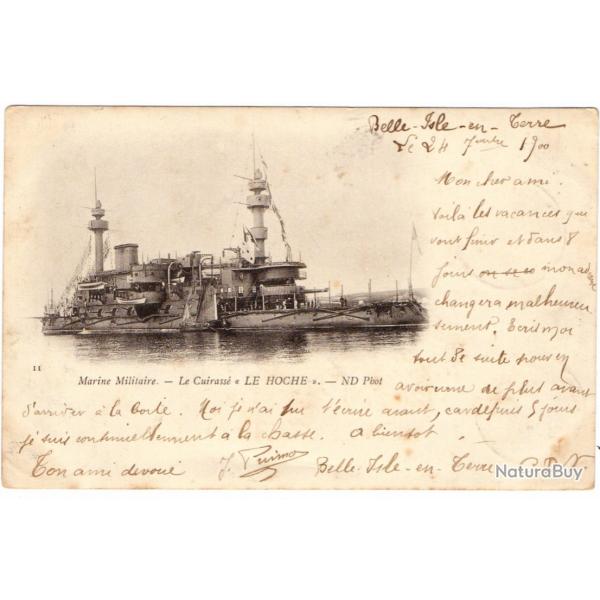 Belle-Isle-en-Terre
Le 24 7embre 1900
Mon cher ami.
Voilà les vacances que
vont finir et dans 8
jours on se mon adresse
changera malheureu
sement. Ecris moi
tout de suite pour en
avoir une de plus avant
d'arriver à la boîte. Moi je n'ai pu t'écrire avant, car depuis 5 jours
je suis continuellement à la chasse. A bientôt.
Ton ami dévoué J.
Belle-Isle-en-Terre C.D.N
11
Marine Militaire. — Le Cuirassé « LE HOCHE ». — ND Phot
NaturaBuy